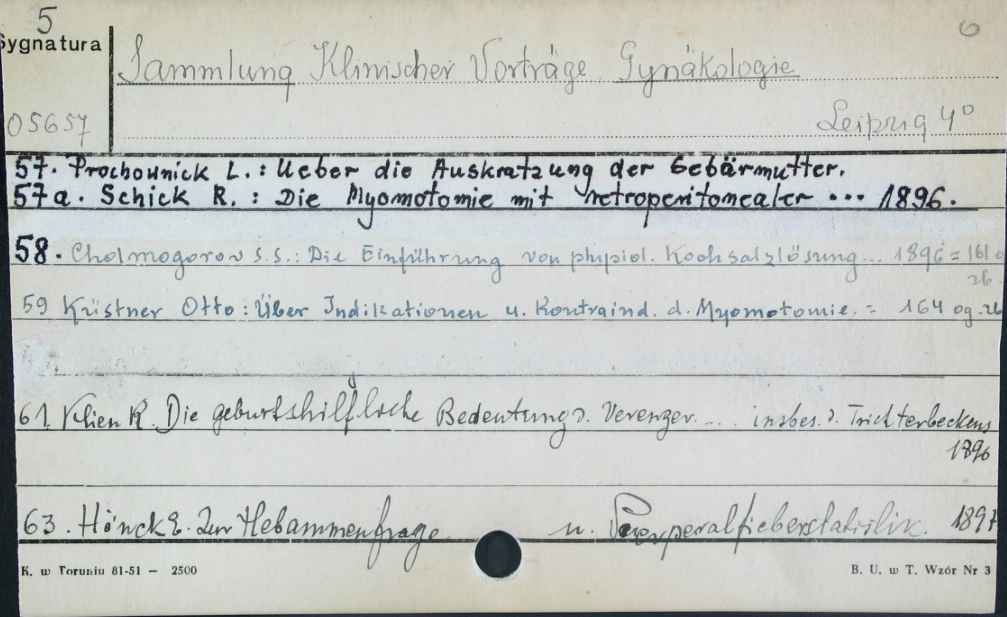 5
6
Sygnatura
Sammlung Klinischer Vorträge Gynäkologie
05657
Leipzig 4°
57. Prochownick L.: Ueber die Auskratzung der Gebärmutter.
57a. Schick R.: Die Myomotomie mit retroperitonealer ... 1896.
58. Cholmogorov S.S.: Die Einführung von physiol. Kochsalzlösung... 1896 = 161
26
59 Küstner Otto: Über Indikationen u. Kontraind. d. Myomotomie. = 164 og. 26
61. Klien R. Die geburtshilfliche Bedeutung d. Verenger.... insbes. d. Trichterbeckens
1896
63. Hönck E. Zur Hebammenfrage u. Puerperalfieberstatistik. 1897
K. w Toruniu 81-51 — 2500
B. U. w T. Wzór Nr 3